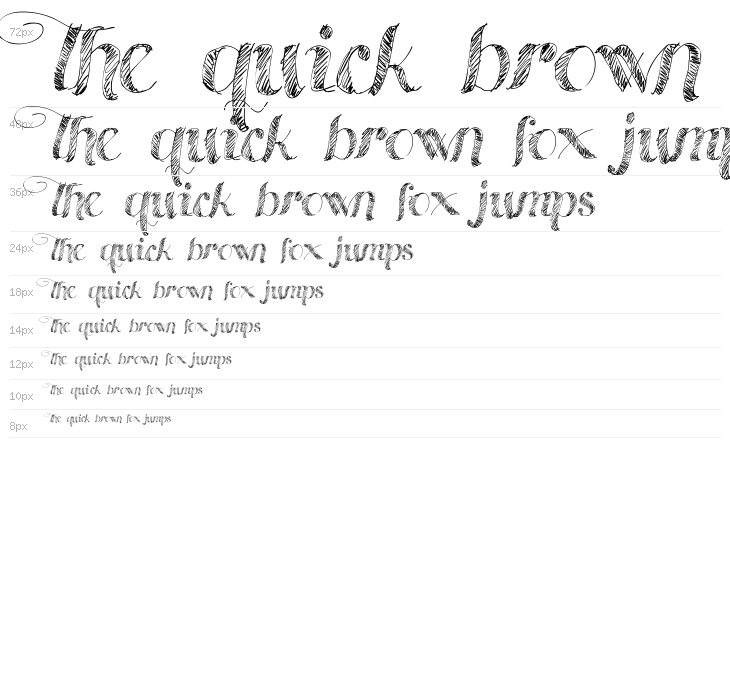 72px the quick brown
48px the quick brown fox jump
36px the quick brown fox jumps
24px the quick brown fox jumps
18px the quick brown fox jumps
14px the quick brown fox jumps
12px the quick brown fox jumps
10px the quick brown fox jumps
8px the quick brown fox jumps